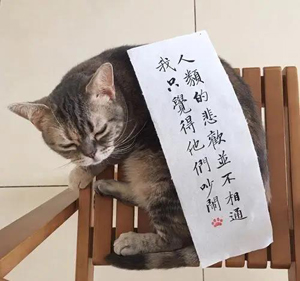 人類的悲歡並不相通
我只覺得他們吵鬧